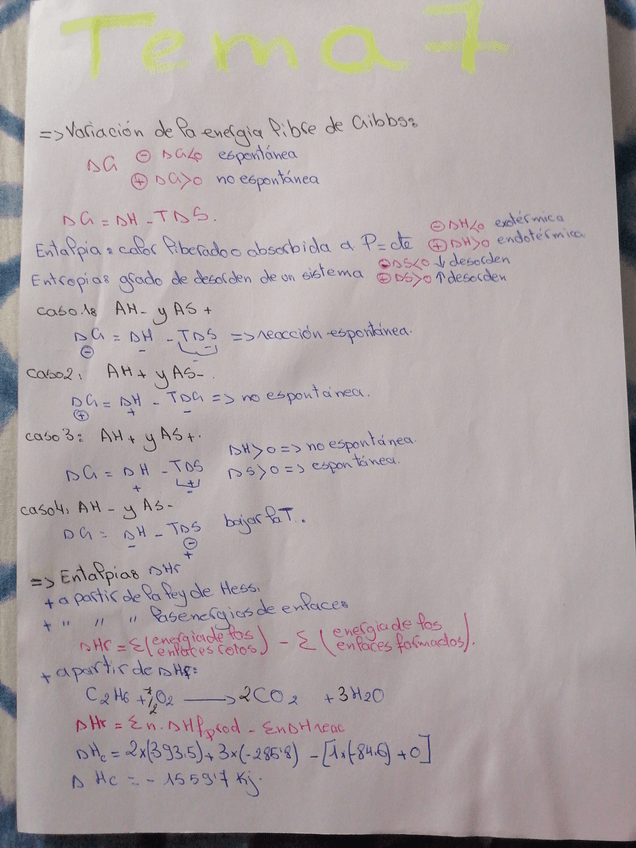 Tema 7
=> Variación de la energía libre de Gibbs:
ΔG ⊖ ΔG<0 espontánea
⊕ ΔG>0 no espontánea
ΔG = ΔH - TΔS.
⊖ ΔH<0 exotérmica
Entalpía: calor liberado o absorbida a P=cte ⊕ ΔH>0 endotérmica
⊖ ΔS<0 ↓ desorden
Entropía: grado de desorden de un sistema ⊕ ΔS>0 ↑ desorden
caso 1: AH- y AS+
ΔG = ΔH - TΔS => reacción espontánea.
⊖ - -
caso 2: AH+ y AS-.
ΔG = ΔH - TΔG => no espontánea.
⊕ + -
caso 3: AH+ y AS+.
ΔH>0 => no espontánea.
ΔG = ΔH - TΔS ΔS>0 => espontánea.
+ +
caso 4: AH- y AS-
ΔG = ΔH - TΔS bajar la T.
- ⊖
+
=> Entalpías ΔHr
+ a partir de la ley de Hess.
+ " " " las energías de enlaces
ΔHr = Σ(energía de los enlaces rotos) - Σ(energía de los enlaces formados).
+ a partir de ΔHf:
C2H6 + 7/2 O2 ⟶ 2CO2 + 3H2O
ΔHr = Σn·ΔHf,prod - ΣnΔHreac
ΔHc = 2x(393'5) + 3x(-285'8) - [1x(-84'6) + 0]
ΔHc = - 1559'7 Kj.